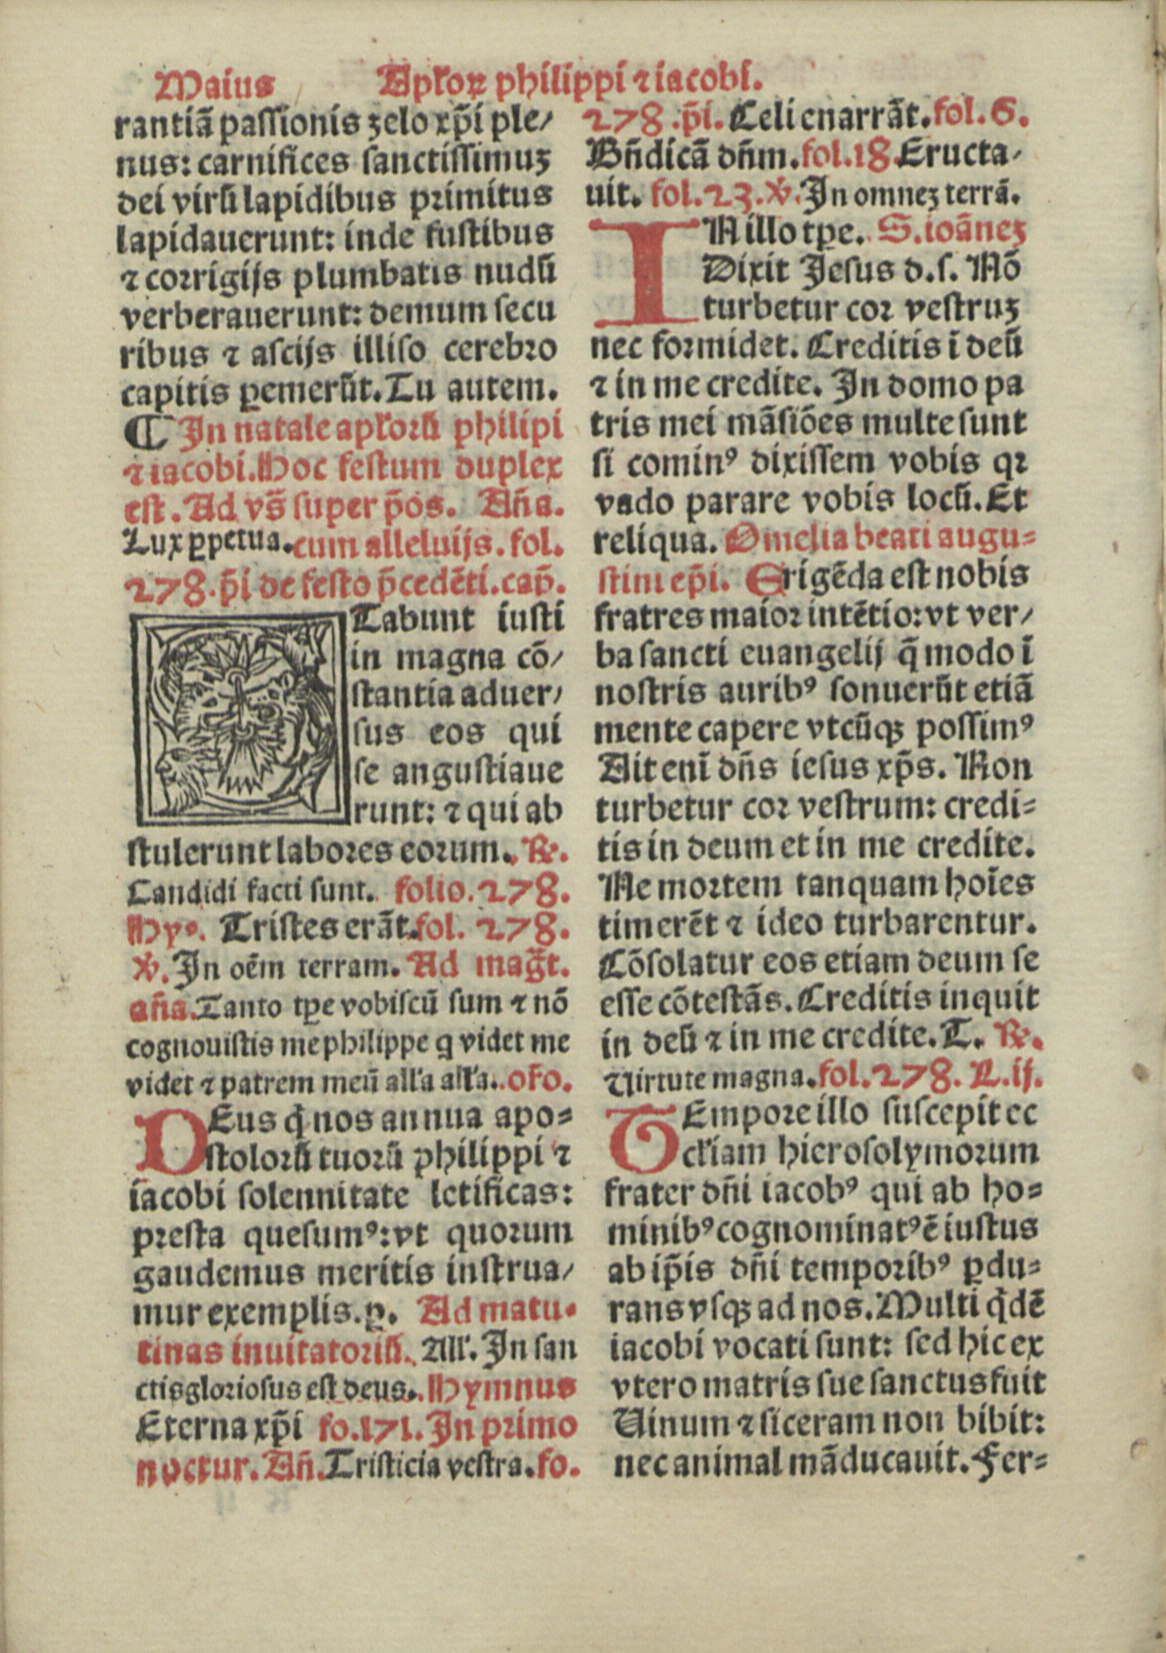 Maius Aplʼoꝝ philippi ⁊ iacobi.
rantiã passionis zelo xp̃i ple/
nus: carnifices sanctissimuꝫ
dei virũ lapidibus primitus
lapidauerunt: inde fustibus
⁊ corrigijs plumbatis nudũ
verberauerunt: demum secu
ribus ⁊ ascijs illiso cerebro
capitis ꝑemerũt. Tu autem.
¶ In natale aplʼorũ philipi
⁊ iacobi. Hoc festum duplex
est. Ad vs̃ super p̃os. Aña.
Lux ꝑpetua. cum alleluijs. fol.
278. p̃i de festo p̃cedẽti. cap̃.
Tabunt iusti
in magna cõ/
stantia aduer/
sus eos qui
se angustiaue
runt: ⁊ qui ab
stulerunt labores eorum. ℟.
Candidi facti sunt. folio. 278.
Hyº. Tristes erãt. fol. 278.
℣. In oẽm terram. Ad mag̃t.
añа. Tanto tꝑe vobiscũ sum ⁊ nõ
cognouistis me philippe q videt me
videt ⁊ patrem meũ allʼa allʼa. oro.
DEus q̇ nos annua apo=
stolorũ tuorũ philippi ⁊
iacobi solennitate letificas:
presta quesumꝰ: vt quorum
gaudemus meritis instrua/
mur exemplis. ꝑ. Ad matu=
tinas inuitatoriũ. Allʼ. In san
ctis gloriosus est deus. Hymnus
Eterna xp̃i fo. 171. In primo
noctur. Añ. Tristicia vestra. fo.
278. p̃i. Celi enarrãt. fol. 6.
Bñdicã dñm. fol. 18. Eructa/
uit. fol. 23. ℣. In omneꝫ terrã.
IN illo tꝑe. S. ioãneꝫ
Dixit Jesus d. s. Nõ
turbetur cor vestruꝫ
nec formidet. Creditis ĩ deũ
⁊ in me credite. In domo pa
tris mei mãsiões multe sunt
si cominꝰ dixissem vobis qꝛ
vado parare vobis locũ. Et
reliqua. Omelia beati augu=
stini ep̃i. Erigẽda est nobis
fratres maior intẽtio: vt ver/
ba sancti euangelij q̃ modo ĩ
nostris auribꝰ sonuerũt etiã
mente capere vtcũqꝫ possimꝰ
Ait enĩ dñs iesus xp̃s. Non
turbetur cor vestrum: credi=
tis in deum et in me credite.
Ne mortem tanquam hoĩes
timerẽt ⁊ ideo turbarentur.
Cõsolatur eos etiam deum se
esse cõtestãs. Creditis inquit
in deũ ⁊ in me credite. T. ℟.
Uirtute magna. fol. 278. L. ij.
TEmpore illo suscepit ec
clʼiam hierosolymorum
frater dñi iacobꝰ qui ab ho=
minibꝰ cognominatꝰ ẽ iustus
ab ip̃is dñi temporibꝰ ꝑdu=
rans vsqꝫ ad nos. Multi q̇dẽ
iacobi vocati sunt: sed hic ex
vtero matris sue sanctus fuit
Uinum ⁊ siceram non bibit:
nec animal mãducauit. Fer=